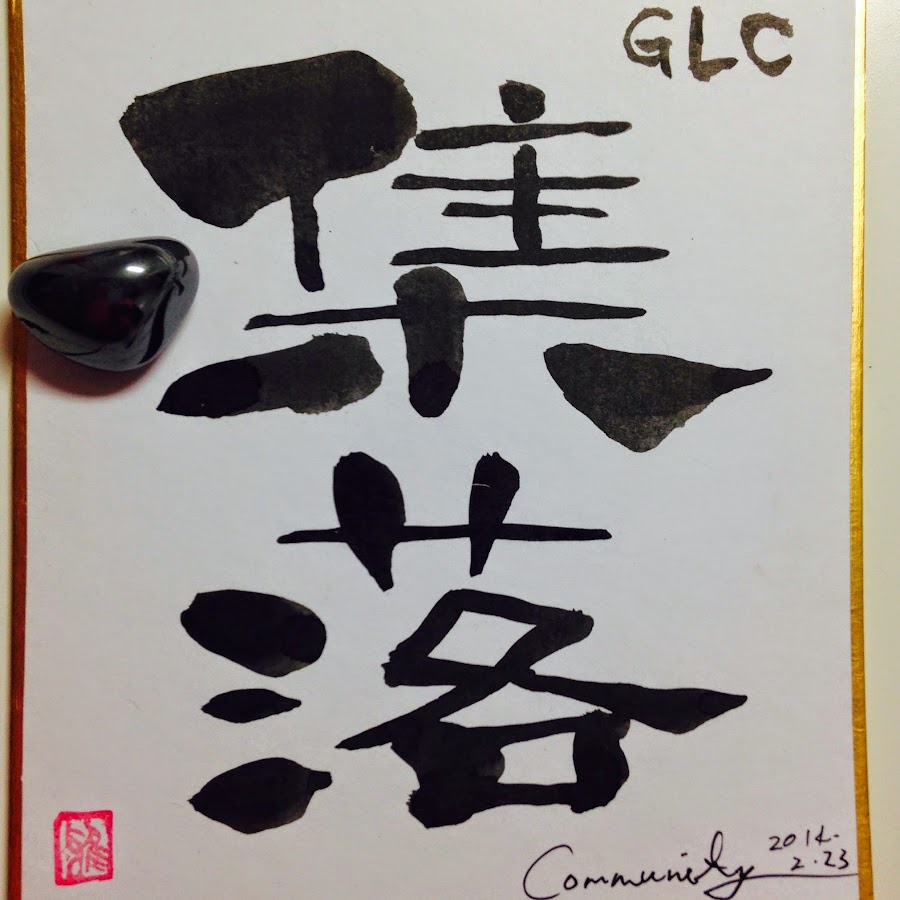 GLC
集
落
Community
2014.
2.23